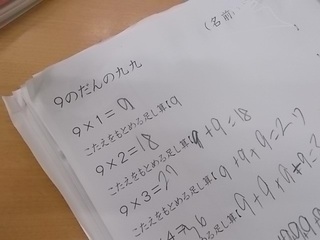 (名前
9のだんの九九
9×1=9
こたえをもとめる足し算:9
9×2=18
こたえをもとめる足し算:9+9=18
9×3=27
こたえをもとめる足し算:9+9+9=27
こたえをもとめる足し算:9+9+9+9=3